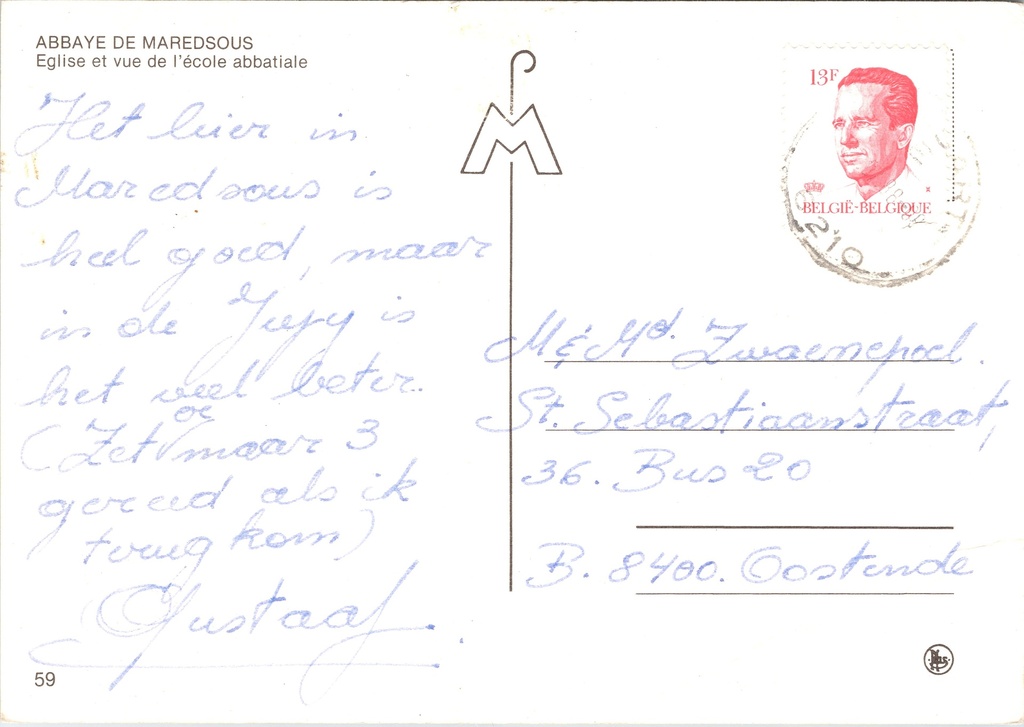 ABBAYE DE MAREDSOUS
Eglise et vue de l'école abbatiale
Het hier in
Maredsous is
heel goed, maar
in de Jupy is
het veel beter.
(Zet er maar 3
gereed als ik
terug kom)
Gustaaf.
59
13F
BELGIË-BELGIQUE
6210
M & Md. Zwaenepoel.
St. Sebastiaanstraat,
36. Bus 20
B. 8400. Oostende